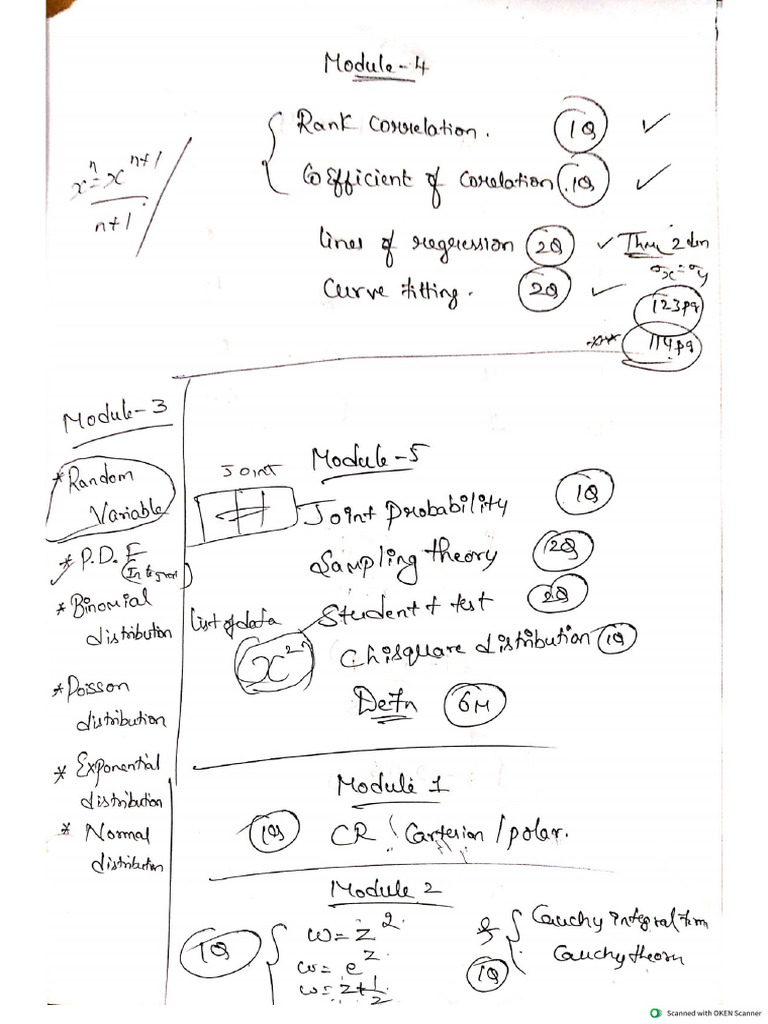 Module-4
Rank Correlation. 1Q ✓
Coefficient of Corelation. 1Q ✓
x^n = x^(n+1)
n+1
lines of regression 2Q ✓ Thm 2 den
σx = σy
Curve fitting. 2Q ✓
123pg
*** 114pg
Module-3
* Random
Variable
* P.D.F
(Integral)
* Binomial
distribution
* Poisson
distribution
* Exponential
distribution
* Normal
distribution
Module-5
JOINT
Joint Probability 1Q
Sampling theory 2Q
Student t test 2Q
List of data
x²
Chisquare distribution 1Q
Defn 6M
Module 1
1Q CR (Cartesian/polar.
Module 2
1Q
w = z²
w = e^z
w = z + 1/z
& Cauchy integral
Cauchy theorm
1Q
Scanned with OKEN Scanner